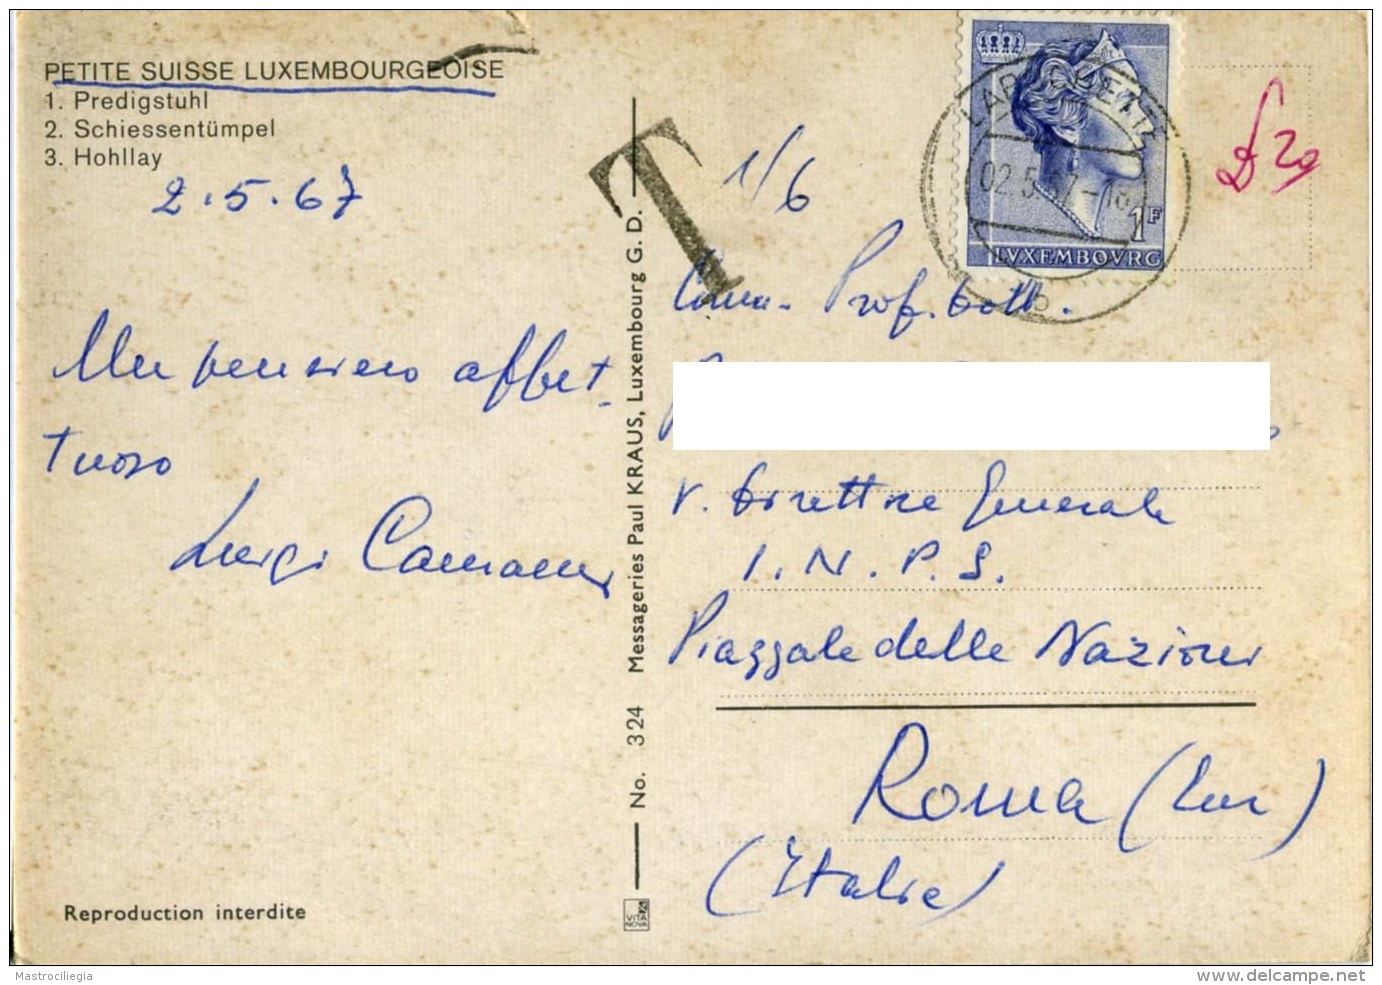 PETITE SUISSE LUXEMBOURGEOISE
1. Predigstuhl
2. Schiessentümpel
3. Hohllay
2.5.67
Un pensiero affet-
tuoso
Luigi
Reproduction interdite
No. 324 Messageries Paul KRAUS, Luxembourg G. D.
VITA
NOVA
T
1/6
LAROCHETTE
02.5.67-18
1F
LVXEMBOVRG
£ 20
Prof. Dott.
V. Direttore Generale
I.N.P.S.
Piazzale delle Nazioni
Roma (Eur)
(Italie)
Mastrociliegia
www.delcampe.net